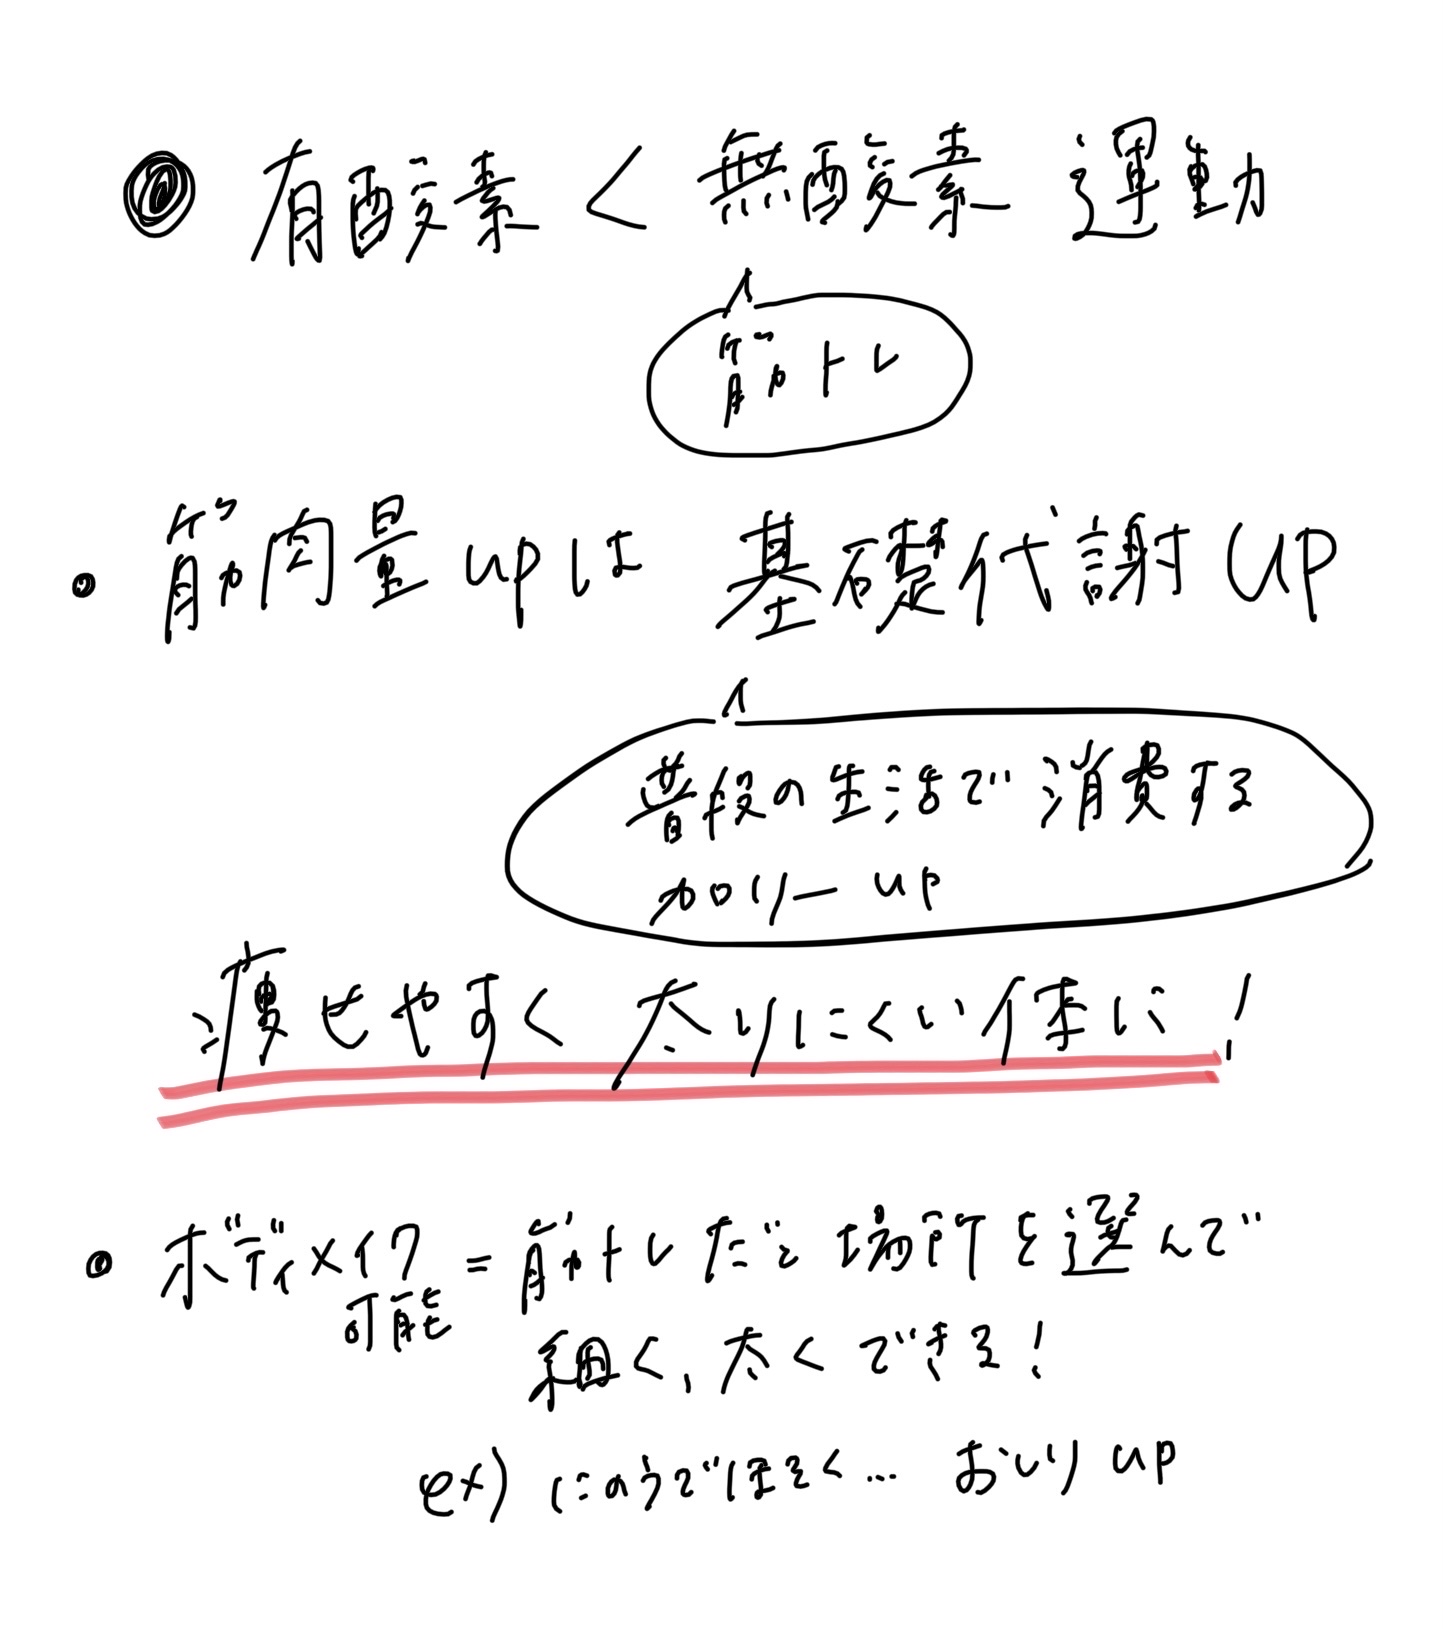 有酸素 < 無酸素 運動
筋トレ
・筋肉量upは 基礎代謝UP
普段の生活で消費する
カロリー up
痩せやすく 太りにくい体に!
・ボディメイク = 筋トレだと場所を選んで
可能
細く、太くできる!
ex) にのうでほそく… おしり up